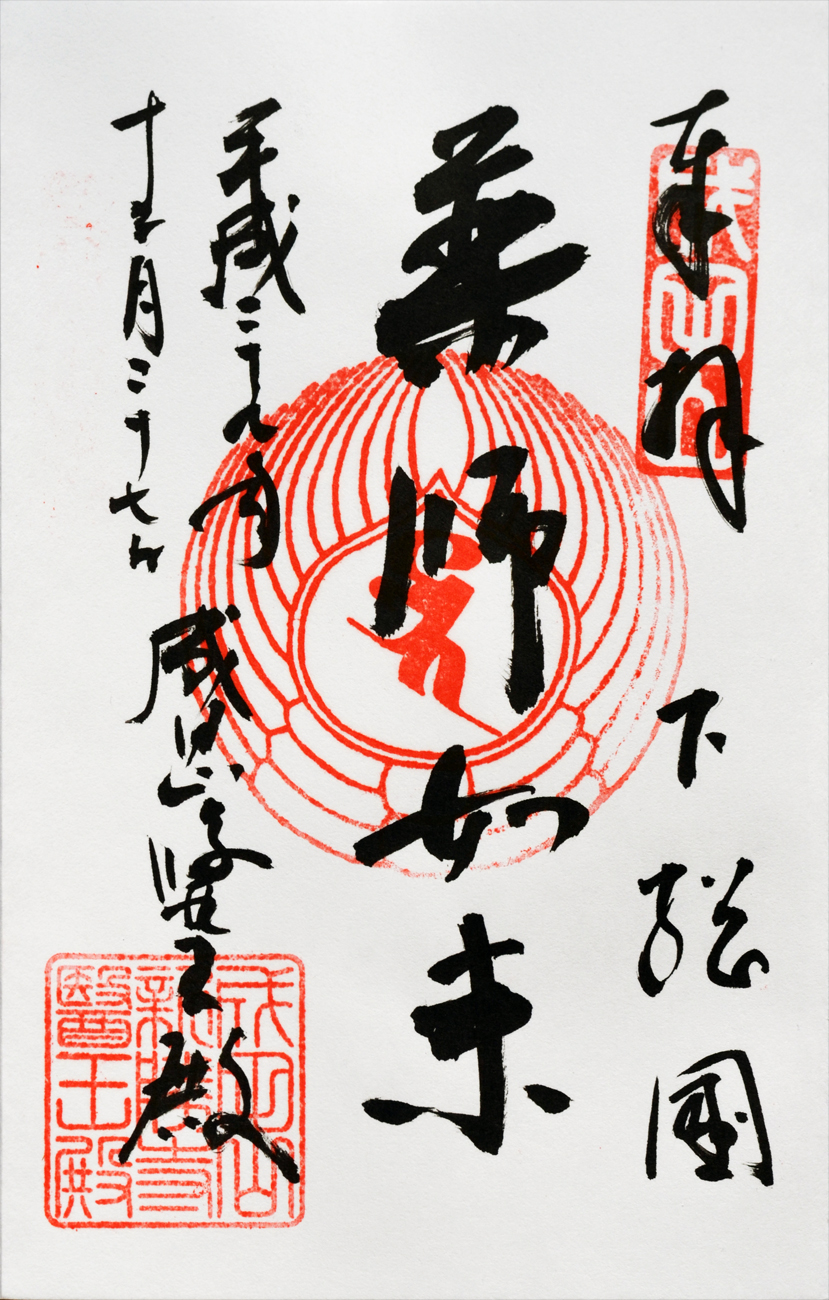 奉拝 下総國
成田山
薬師如来
平成二十九年
十二月二十七日
成田山醫王殿
成田山
新勝寺
醫王殿